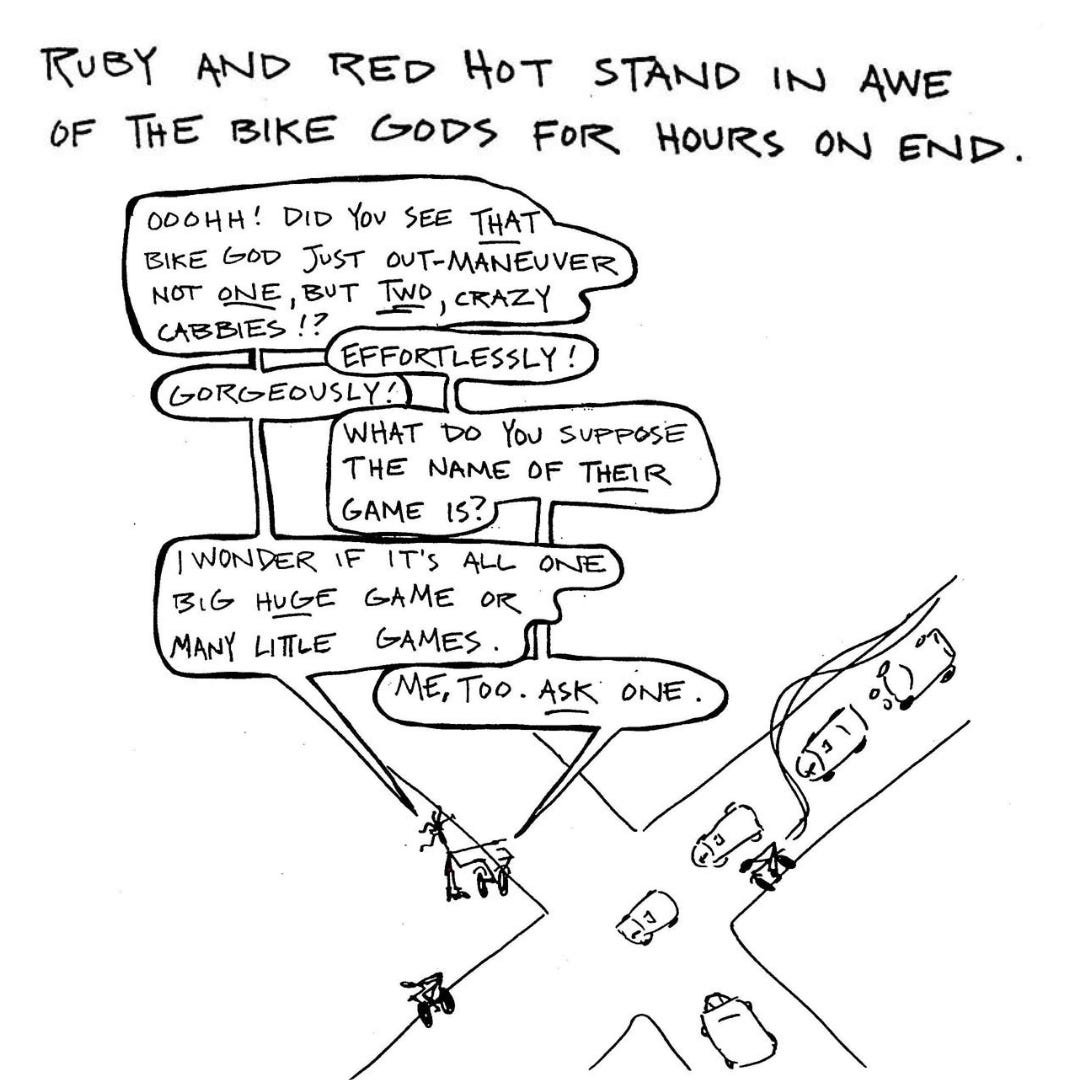 RUBY AND RED HOT STAND IN AWE
OF THE BIKE GODS FOR HOURS ON END.
OOOHH! DID YOU SEE THAT
BIKE GOD JUST OUT-MANEUVER
NOT ONE, BUT TWO, CRAZY
CABBIES!?
EFFORTLESSLY!
GORGEOUSLY!
WHAT DO YOU SUPPOSE
THE NAME OF THEIR
GAME IS?
I WONDER IF IT'S ALL ONE
BIG HUGE GAME OR
MANY LITTLE GAMES.
ME, TOO. ASK ONE.